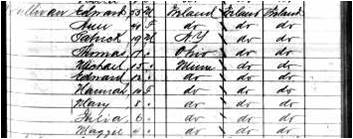 Edward 55 M Ireland Ireland Ireland
F do do do
Patrick 19 M NY do do
Thomas 17 Ohio do do
Michael 15 Minn do do
Edward 12 do do do
Hannah 10 F do do do
Mary 8 do do do
Julia 6 do do do
Maggie 4 do do do